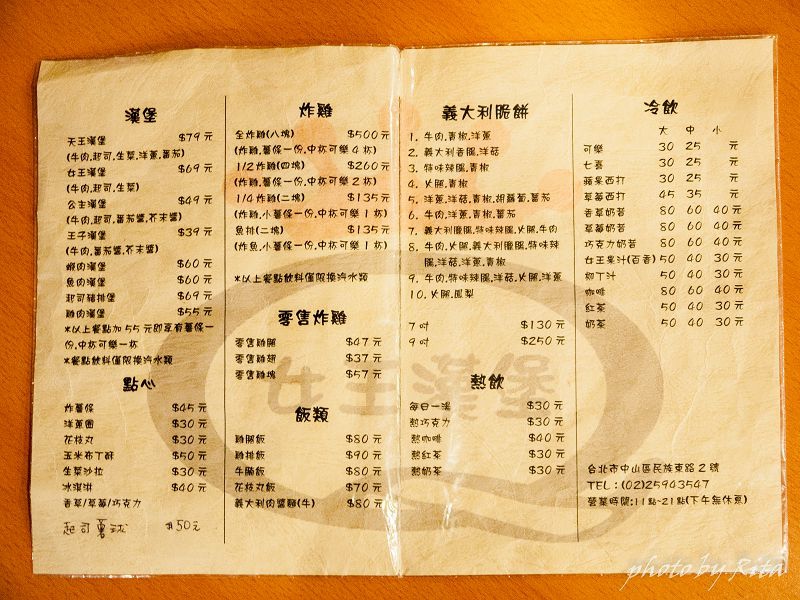 漢堡
天王漢堡 $79 元
(牛肉,起司,生菜,洋蔥,蕃茄)
女王漢堡 $69 元
(牛肉,起司,生菜)
公主漢堡 $49 元
(牛肉,起司,蕃茄醬,芥末醬)
王子漢堡 $39 元
(牛肉,蕃茄醬,芥末醬)
蝦肉漢堡 $60 元
魚肉漢堡 $60 元
起司豬排堡 $69 元
雞肉漢堡 $55 元
*以上餐點加 55 元即享後薯條一
份,中杯可樂一杯
*餐點飲料僅限換冷水類
點心
炸薯條 $45 元
洋蔥圈 $30 元
花枝丸 $30 元
玉米布丁酥 $50 元
生菜沙拉 $30 元
冰淇淋 $40 元
香草/草莓/巧克力
起司薯球 $50元
炸雞
全炸雞(八塊) $500 元
(炸雞,薯條一份,中杯可樂 4 杯)
1/2 炸雞(四塊) $260 元
(炸雞,薯條一份,中杯可樂 2 杯)
1/4 炸雞(二塊) $135 元
(炸雞,小薯條一份,中杯可樂 1 杯)
魚排(二塊) $135 元
(炸魚,小薯條一份,中杯可樂 1 杯)
*以上餐點飲料僅限換冷水類
零售炸雞
零售雞腿 $47 元
零售雞翅 $37 元
零售雞塊 $57 元
飯類
雞腿飯 $80 元
雞排飯 $90 元
牛腩飯 $80 元
花枝丸飯 $70 元
義大利肉醬麵(牛) $80 元
義大利脆餅
1. 牛肉,青椒,洋蔥
2. 義大利香腸,洋菇
3. 特味辣腸,青椒
4. 火腿,青椒
5. 洋蔥,洋菇,青椒,胡蘿蔔,蕃茄
6. 牛肉,洋蔥,青椒,蕃茄
7. 義大利臘腸,特味辣腸,火腿,牛肉
8. 牛肉,火腿,義大利臘腸,特味辣
腸,洋菇,洋蔥,青椒
9. 牛肉,特味辣腸,洋菇,火腿,洋蔥
10. 火腿,鳳梨
7 吋 $130 元
9 吋 $250 元
熱飲
每日一湯 $30 元
熱巧克力 $30 元
熱咖啡 $40 元
熱紅茶 $30 元
熱奶茶 $30 元
冷飲
大 中 小
可樂 30 25 元
七喜 30 25 元
蘋果西打 30 25 元
草莓西打 45 35 元
香草奶昔 80 60 40 元
草莓奶昔 80 60 40 元
巧克力奶昔 80 60 40 元
女王果汁(百香) 50 40 30 元
柳丁汁 50 40 30 元
咖啡 80 60 40 元
紅茶 50 40 30 元
奶茶 50 40 30 元
台北市中山區民族東路 2 號
TEL:(02)25943547
營業時間:11點~21點(下午無休息)
女王漢堡
photo by Rita